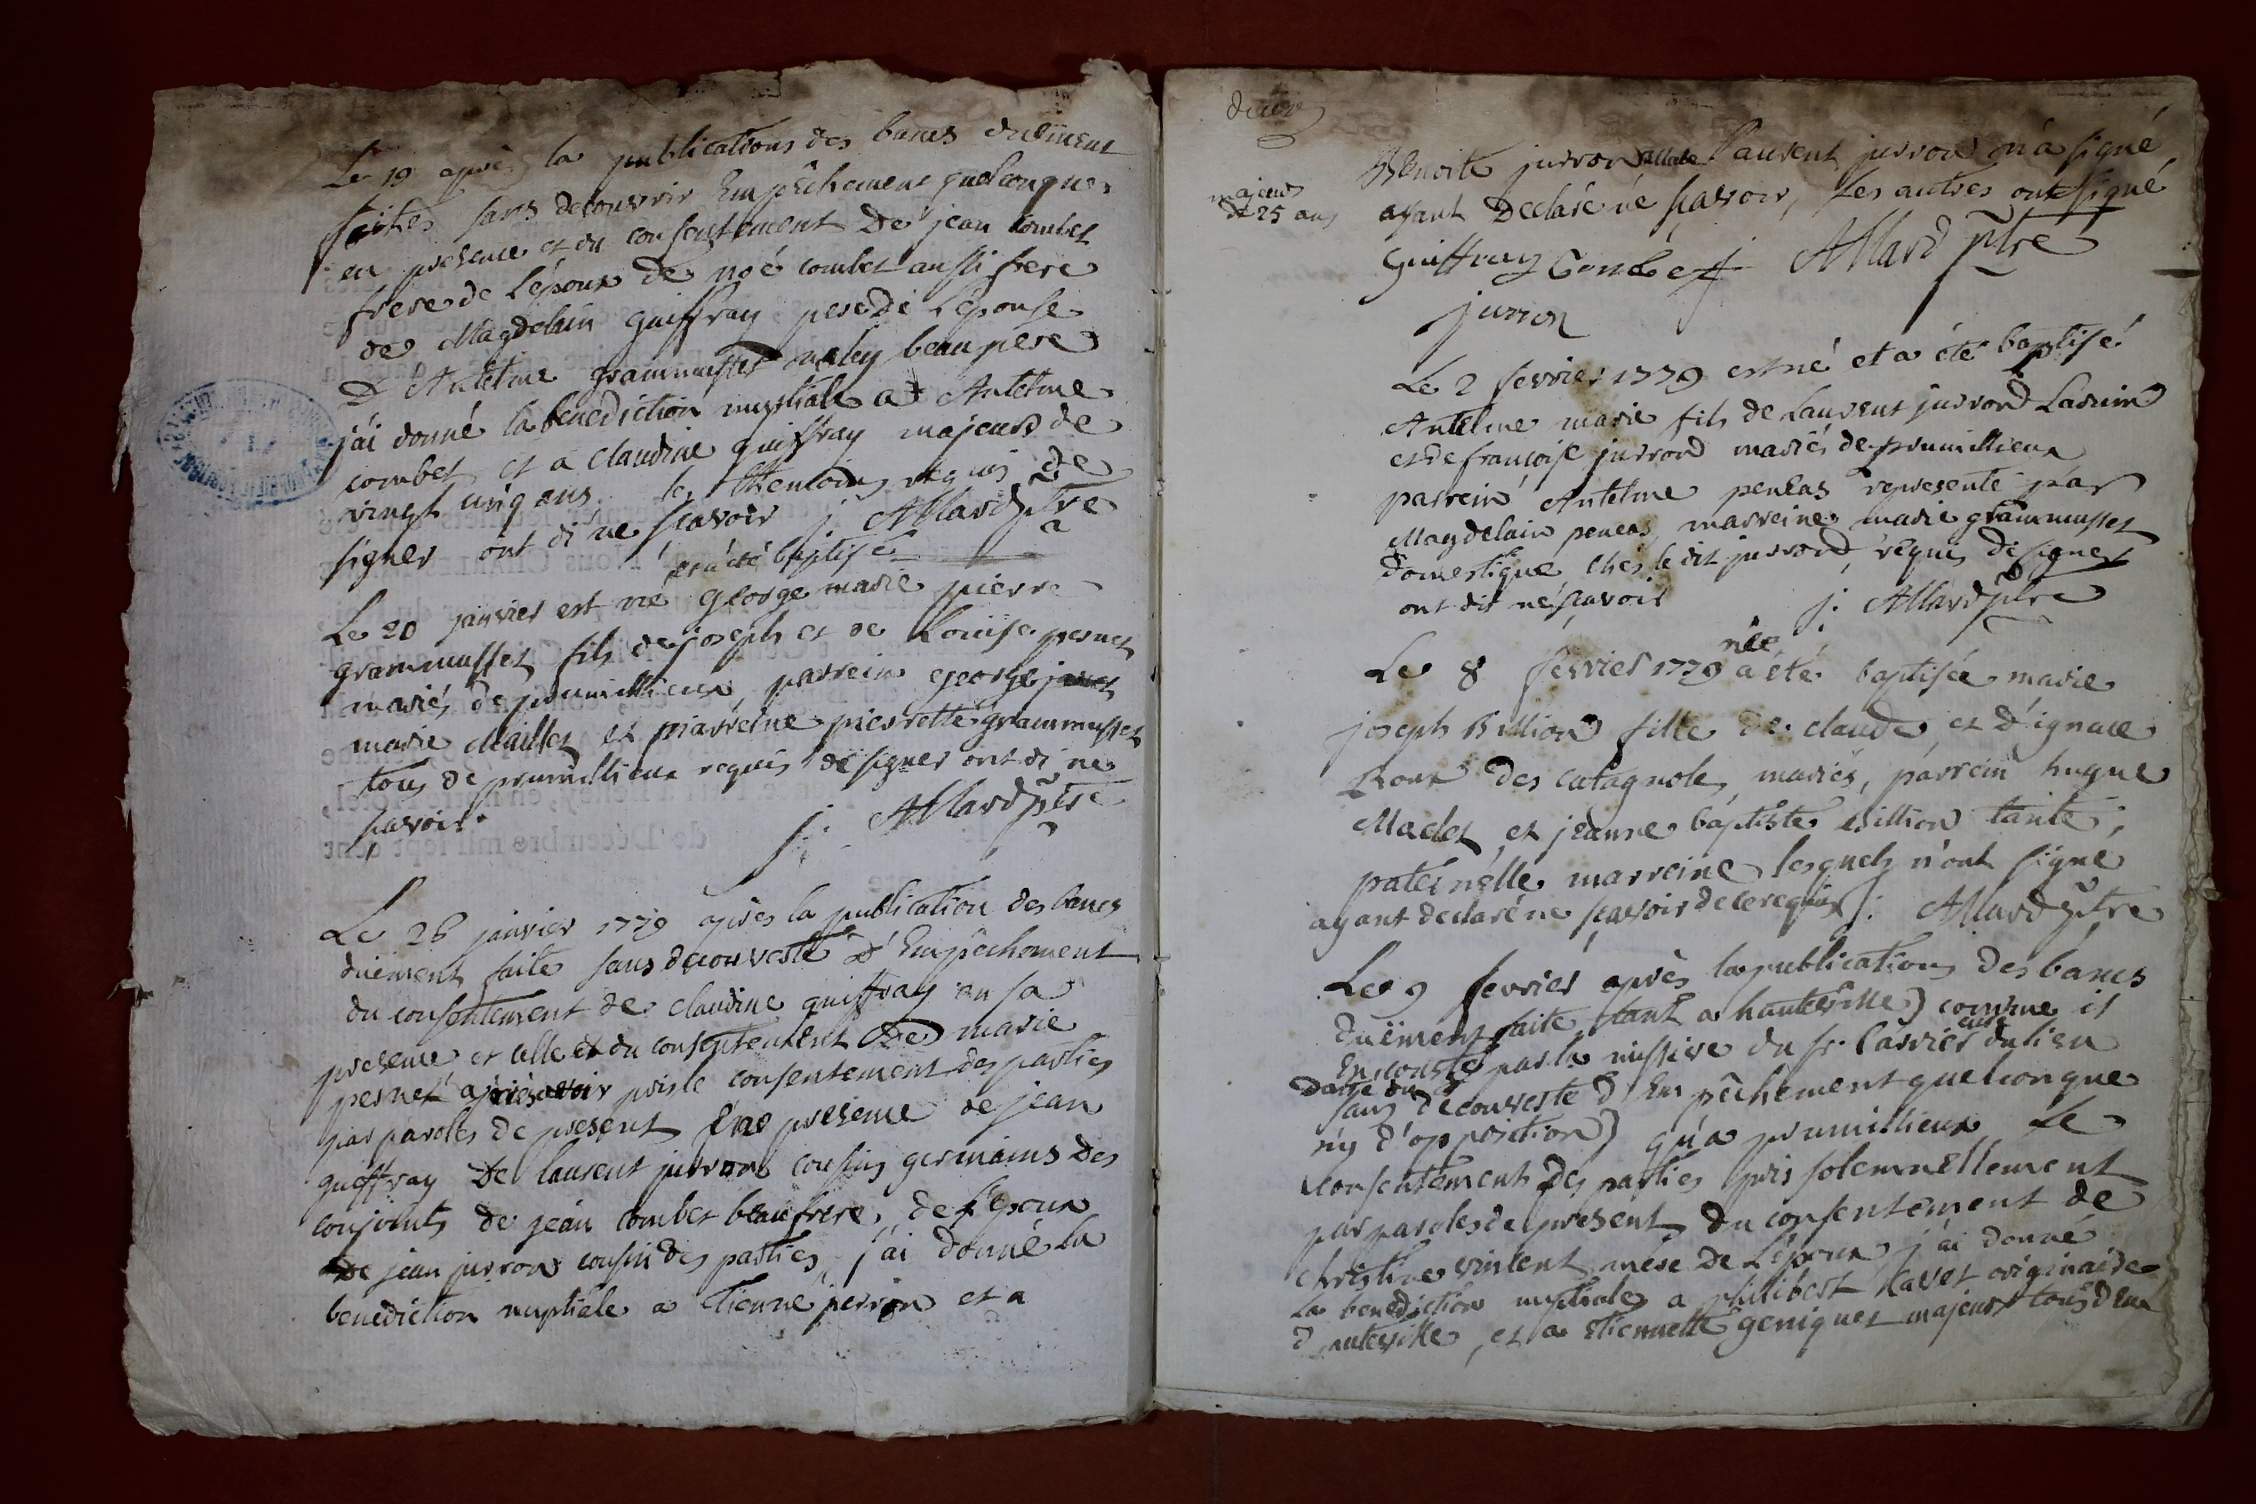 Le 19 après la publications des bancs duëment
faites sans decouvrir Empêchement quelconques
en presence et du consentement De jean combet
frere de L'époux de noé combet aussi frere
de Magdelain guiffray pere de L'épouse
D'Antelme grammusset beau pere
j'ai donné la benediction nuptiale a Antelme
combet et a claudine guiffray majeurs de
vingt cinq ans les thémoins requis de
signer ont di ne scavoir j: Allard ptre
et a été baptisé
Le 20 janvier est né george marie pierre
grammusset fils de joseph et de Louise pernet
mariés de prumillieux parrein george
marie Maillet et marreine pierrette grammusset
tous de prumillieux requis de signer ont di ne
scavoir. j: Allard ptre
Le 26 janvier 1779 après la publication des bancs
duëment faite sans decouverte D'Empêchement
du consentement de claudine guiffray en sa
presence et celle et du consentement De marie
pernet après avoir pris le consentement des parties
par paroles de present En presence de jean
guiffray De laurent jurron cousins germains des
conjoints de jean combet beaufrere, de L'époux
De jean jurron cousin des parties, j'ai donné la
benediction nuptiale a Etienne perron et a
deux
majeurs
de 25 ans
Benoite jurron Laurent jurron n'a signé
ayant Declaré ne scavoir, Les autres ont signé
guiffray Combet j Allard ptre
jurron
Le 2 fevrier 1779 est né et a été baptisé
Antelme marie fils de Laurent jurrond
et de francoise jurrond mariés de prumillieux
parrein Antelme peneas representé par
Magdelain peneas, marreine marie grammusset
Domestique chés le dit jurrond, requis de signer
ont dit ne scavoir j: Allard ptre
née
Le 8 fevrier 1779 a été baptisée marie
joseph Billion fille de claude et d'ignace
Roux des catagnole, mariés, parrein hugue
Maclet, et jeanne baptiste billion tante,
paternélle marreine lesquels n'ont signé
ayant declaré ne scavoir de ce requis j: Allard ptre
Le 9 fevrier après la publications des bancs
Duëment faite tant a hauteville comme il
curé
En conste par la missive du sr. Carrier du lieu
Datté du 8
sans decouverte d'Empêchement quelconque
ny d'opposition qu'a prumillieux Le
consentement des parties pris solemnellement
par paroles de present Du consentement de
christine vincent mere de L'époux, j'ai donné
La benediction nuptiale a philibert Savet originaire
d'auteville, et a Etiennette geniquet majeurs tous deux